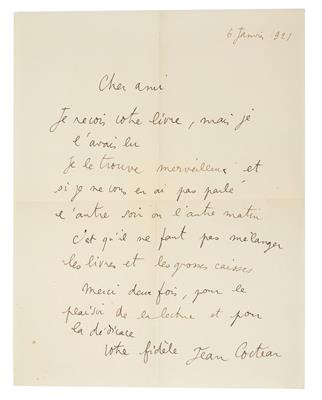 6 Janvier 1921
Cher ami
Je reçois votre livre, mais je
l'avais lu
Je le trouve merveilleux et
si je ne vous en ai pas parlé
l'autre soir ou l'autre matin
c'est qu'il ne faut pas mélanger
les livres et les grosses caisses
Merci deux fois, pour le
plaisir de la lecture et pour
la dédicace
Votre fidèle Jean Cocteau